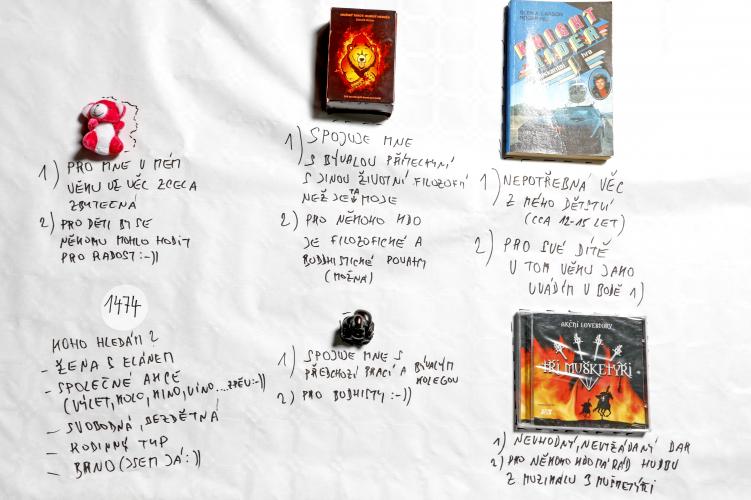 GLEN A. LARSON
ROGER HILL
KNIGHT
RIDER
hra
1) PRO MNE V MÉM
VĚKU UŽ VĚC ZCELA
ZBYTEČNÁ
2) PRO DĚTI BY SE
NĚKOMU MOHLO HODIT
PRO RADOST :-))
1) SPOJUJE MNE
S BÝVALOU PŘÍTELKYNÍ
S JINOU ŽIVOTNÍ FILOZOFIÍ
NEŽ JE TA MOJE
2) PRO NĚKOHO KDO
JE FILOZOFICKÉ A
BUDDHISTICKÉ POVAHY
(MOŽNÁ)
1) NEPOTŘEBNÁ VĚC
Z MÉHO DĚTSTVÍ
(CCA 12-15 LET)
2) PRO SVÉ DÍTĚ
V TOM VĚKU JAKO
UVÁDÍM V BODĚ 1)
1474
KOHO HLEDÁM?
- ŽENA S ELÁNEM
- SPOLEČNÉ AKCE
(VÝLET, KOLO, KINO, VÍNO...ZPĚV:-))
- SVOBODNÁ, BEZDĚTNÁ
- RODINNÝ TYP
- BRNO (JSEM JÁ:))
1) SPOJUJE MNE S
PŘEDCHOZÍ PRACÍ A BÝVALÝM
KOLEGOU
2) PRO BUDHISTY :-))
AKČNÍ LOVESTORY
TŘI MUŠKETÝŘI
1) NEVHODNÝ, NEVYŽÁDANÝ DAR
2) PRO NĚKOHO KDO MÁ RÁD HUDBU
Z MUZIKÁLU 3 MUŠKETÝŘI